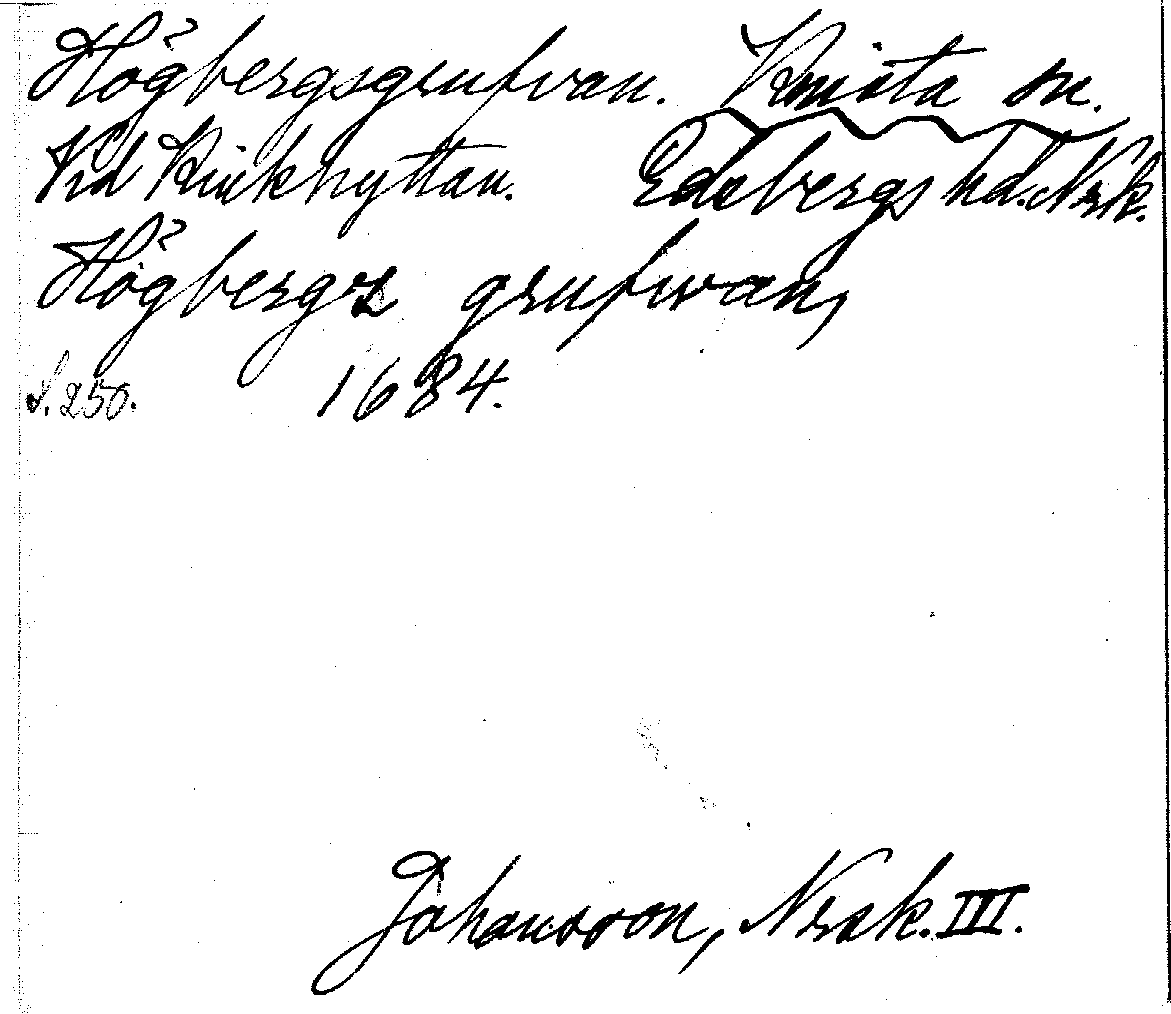 Högbergsgrufvan. Knista sn.
Vid Rinkhyttan. Edsbergs hd. Nrk.
Högbergz grufwan,
S. 250. 1684.
Johansson, Nrak. III.